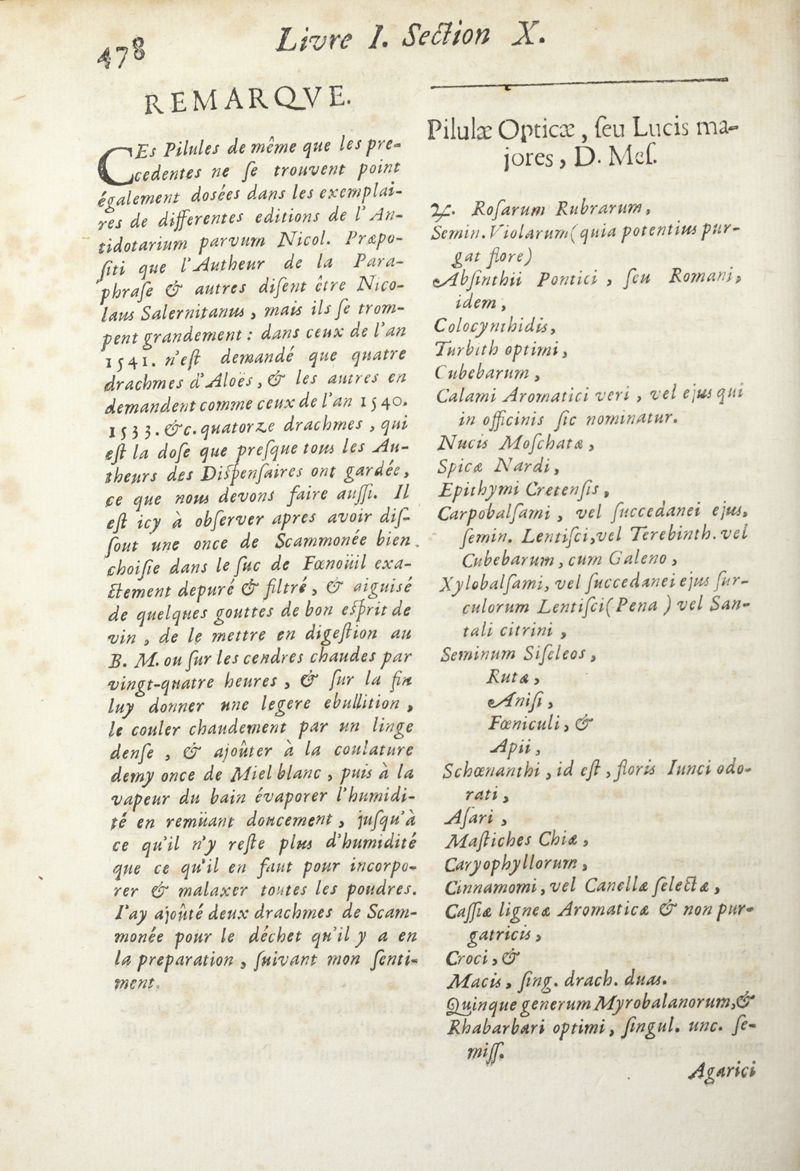 478
Livre I. Section X.
REMARQVE.
CEs Pilules de même que les pre-
cedentes ne se trouvent point
également dosées dans les exemplai-
res de differentes editions de l'An-
tidotarium parvum Nicol. Præpo-
siti que l'Autheur de la Para-
phrase & autres disent être Nico-
laus Salernitanus, mais ils se trom-
pent grandement : dans ceux de l'an
1541. n'est demandé que quatre
drachmes d'Aloës, & les autres en
demandent comme ceux de l'an 1540.
1533. &c. quatorze drachmes, qui
est la dose que presque tous les Au-
theurs des Dispensaires ont gardée,
ce que nous devons faire aussi. Il
est icy à observer apres avoir dis-
sout une once de Scammonée bien
choisie dans le suc de Fœnoüil exa-
ctement depuré & filtré, & aiguisé
de quelques gouttes de bon esprit de
vin, de le mettre en digestion au
B. M. ou sur les cendres chaudes par
vingt-quatre heures, & sur la fin
luy donner une legere ebullition,
le couler chaudement par un linge
dense, & ajoûter à la coulature
demy once de Miel blanc, puis à la
vapeur du bain évaporer l'humidi-
té en remüant doucement, jusqu'à
ce qu'il n'y reste plus d'humidité
que ce qu'il en faut pour incorpo-
rer & malaxer toutes les poudres.
I'ay ajoûté deux drachmes de Scam-
monée pour le déchet qu'il y a en
la preparation, suivant mon senti-
ment.
Pilulæ Opticæ, seu Lucis ma-
jores, D. Mes.
℞. Rosarum Rubrarum,
Semin. Violarum (quia potentius pur-
gat flore)
Absinthii Pontici, seu Romani,
idem,
Colocynthidis,
Turbith optimi,
Cubebarum,
Calami Aromatici veri, vel ejus qui
in officinis sic nominatur.
Nucis Moschatæ,
Spicæ Nardi,
Epithymi Cretensis,
Carpobalsami, vel succedanei ejus,
semin. Lentisci, vel Terebinth. vel
Cubebarum, cum Galeno,
Xylobalsami, vel succedanei ejus sur-
culorum Lentisci (Pena) vel San-
tali citrini,
Seminum Siseleos,
Rutæ,
Anisi,
Fœniculi, &
Apii,
Schœnanthi, id est, floris Iunci odo-
rati,
Asari,
Mastiches Chiæ,
Caryophyllorum,
Cinnamomi, vel Canellæ selectæ,
Cassiæ ligneæ Aromaticæ & non pur-
gatricis,
Croci, &
Macis, sing. drach. duas.
Quinque generum Myrobalanorum, &
Rhabarbari optimi, singul. unc. se-
miss.
Agarici